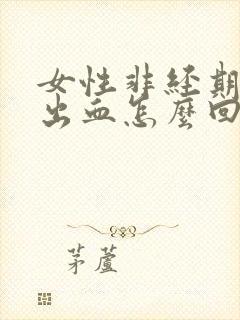 女性非经期
出血怎麼回
茅蘆